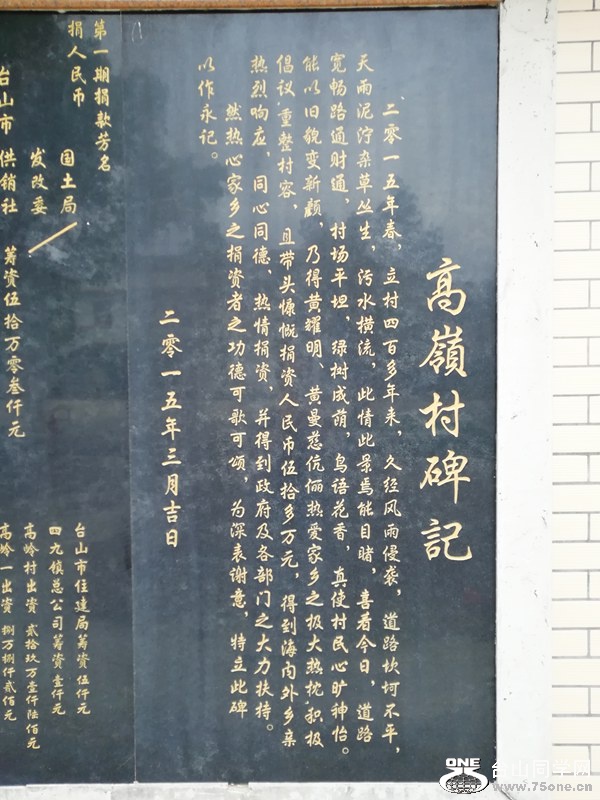 高嶺村碑記
二零一五年春，立村四百多年来，久经风雨侵袭，道路坎坷不平，
天雨泥泞杂草丛生，污水横流，此情此景焉能目睹，喜看今日，道路
宽畅路通财通，村场平坦，绿树成荫，鸟语花香，真使村民心旷神怡。
能以旧貌变新颜，乃得黄耀明、黄曼慈伉俪热爱家乡之极大热忱，积极
倡议重整村容，且带头慷慨捐资人民币伍拾多万元，得到海内外乡亲
热烈响应，同心同德、热情捐资，并得到政府及各部门之大力扶持。
然热心家乡之捐资者之功德可歌可颂，为深表谢意，特立此碑
以作永记。
二零一五年三月吉日
第一期捐款芳名
捐人民币
国土局
发改委
台山市 供销社
筹资伍拾万零叁仟元
台山市住建局筹资伍仟元
四九镇总公司筹资壹仟元
高岭村出资 贰拾玖万壹仟陆佰元
高岭一出资 捌万捌仟贰佰元
ONE
台山同学网
www.75one.cn